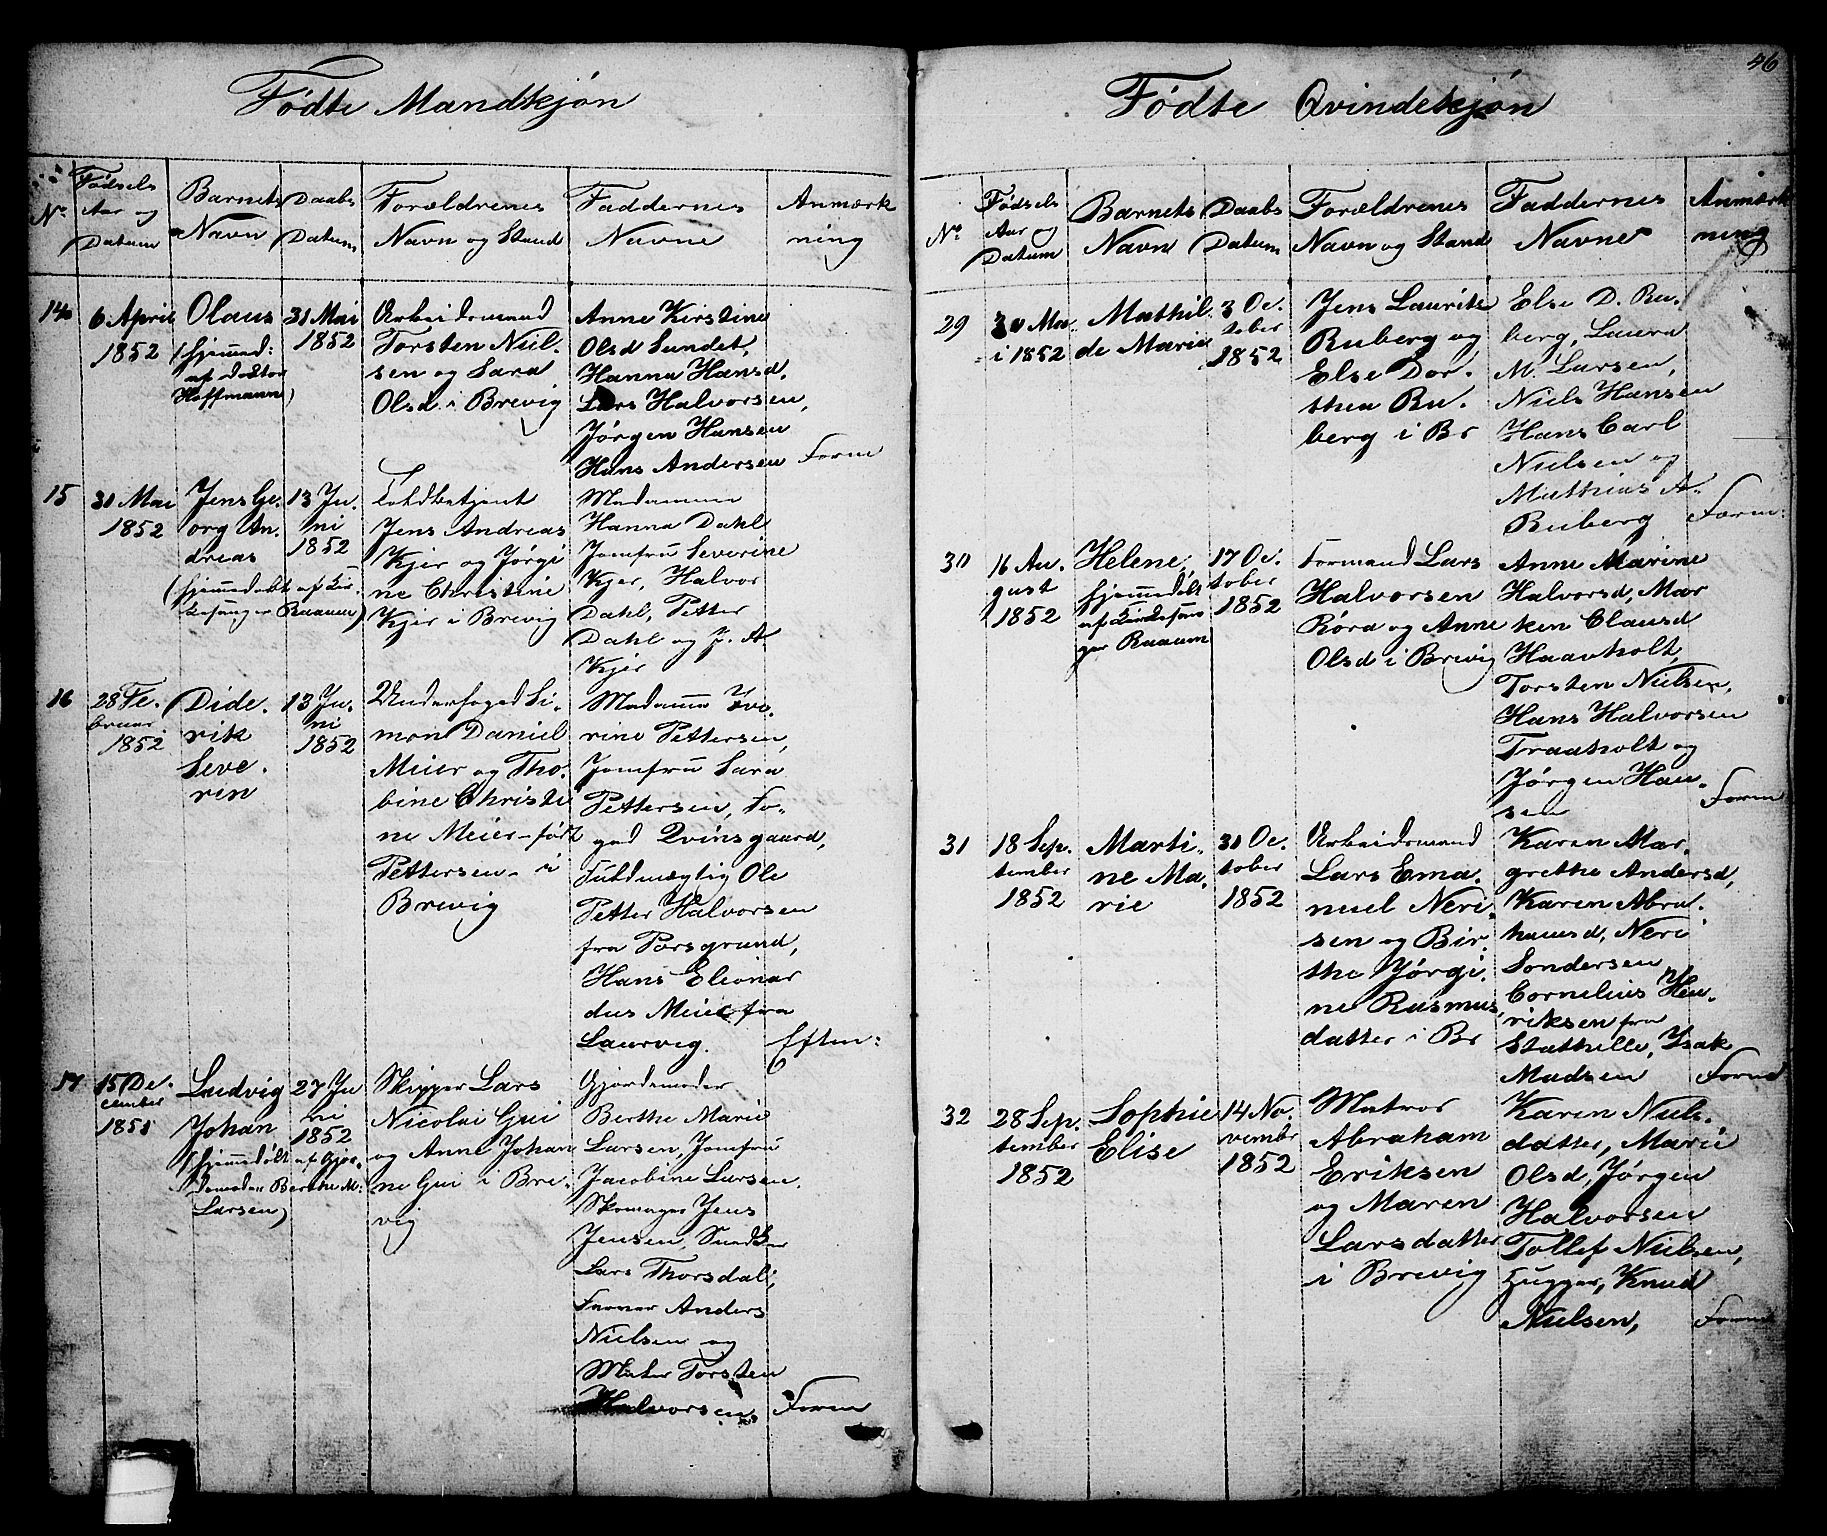 46
Fødte Mandkjøn
No
Fødsels
Aar og
Datum
Barnets
Navn
Daabs
Datum
Forældrenes
Navn og Stand
Faddernes
Navne
Anmærk
ning
14
6 April
1852
Olaus
(hjemmed:
af doktor
Hoffmann)
31 Mai
1852
Arbeidsmand
Torsten Niel-
sen og Sara
Olsd. i Brevig
Anne Kirstine
Olsd Sundet,
Hanna Hansd.
Lars Halvorsen,
Jørgen Hansen
Hans Andersen
Form
15
30 Mai
1852
Jens Ge-
org An-
dreas
(hjemmedøbt af Kir-
kesanger Raaum)
13 Ju-
ni
1852
Toldbetjent
Jens Andreas
Kjer og Jørgi
ne Christine
Kjer i Brevig
Madamme
Hanna Dahl
Jomfru Severine
Kjer, Halvor
Dahl, Petter
Dahl og J. A.
Kjer
16
28 Fe-
bruar
1852
Dide-
rik
Seve-
rin
13 Ju-
ni
1852
Underfoged Si-
mon Daniel
Meier og Tho-
bine Christi
ne Meier født
Pettersen i
Brevig
Madame
rine Pettersen,
Jomfru Sara
Pettersen, Fo-
ged Qvinsgaard,
Fuldmægtig Ole
Petter Halvorsen
fra Porsgrund,
Hans Eleonar
dus Meier fra
Laurvig.
Eftm:
17
15 De-
cember
1851
Ludvig
Johan
(hjemmedøbt af Gjor-
demoder Berthe M.
Larsen)
27 Ju
ni
1852
Skipper Lars
Nicolai Gui
og Anne Johan
ne Gui i Bre-
vig
Gjordemoder
Berthe Marie
Larsen, Jomfru
Jacobine Larsen.
Skomager Jens
Jensen,
Lars Thorsdal,
Farver Anders
Nielsen og
Torsten
Halvorsen
Form
Fødte Qvindekjøn
No
Fødsels
Aar og
Datum
Barnets
Navn
Daabs
Datum
Forældrenes
Navn og Stand
Faddernes
Navne
Anmærk
ning
29
30 Ma-
i 1852
Mathil
de Marie
3 Oc-
tober
1852
Jens Laurits
Ruberg og
Else Dor-
thea Ru-
berg i Br
Else D. Ru-
berg, Laura
M. Larsen,
Niels Hansen
Hans Carl
Nielsen og
Mathias A.
Ruberg
Form:
30
16 Au-
gust
1852
Helene,
hjemmedøbt
af Kirkesan
ger Raaum
17 Oc-
tober
1852
Formand Lars
Halvorsen
Røra og Anne
Olsd i Brevig
Anne Marine
Halvorsd, Mar
ken Clausd
Haavholt,
Torsten Nielsen,
Hans Halvorsen
Traaholt og
Jørgen Han-
sen
Form
31
18 Sep-
tember
1852
Marti-
ne Ma-
rie
31 Oc-
tober
1852
Arbeidsmand
Lars Ema-
nuel Neri-
sen og Bir-
the Jørgi-
ne Rasmus
datter i Br
Karen Mar-
grethe Andersd,
Karen Abra-
hamsd, Neri
Sondersen
Cornelius Hen-
riksen fra
Stathelle, Isak
Madsen
Form
32
28 Sep-
tember
1852
Sophie
Elise
14 No-
vember
1852
Matros
Abraham
Eriksen
og Maren
Larsdatter
i Brevig
Karen Niels-
datter, Marie
Olsd, Jørgen
Halvorsen
Tollef Nielsen,
Hugger, Knud
Nielsen,
Form